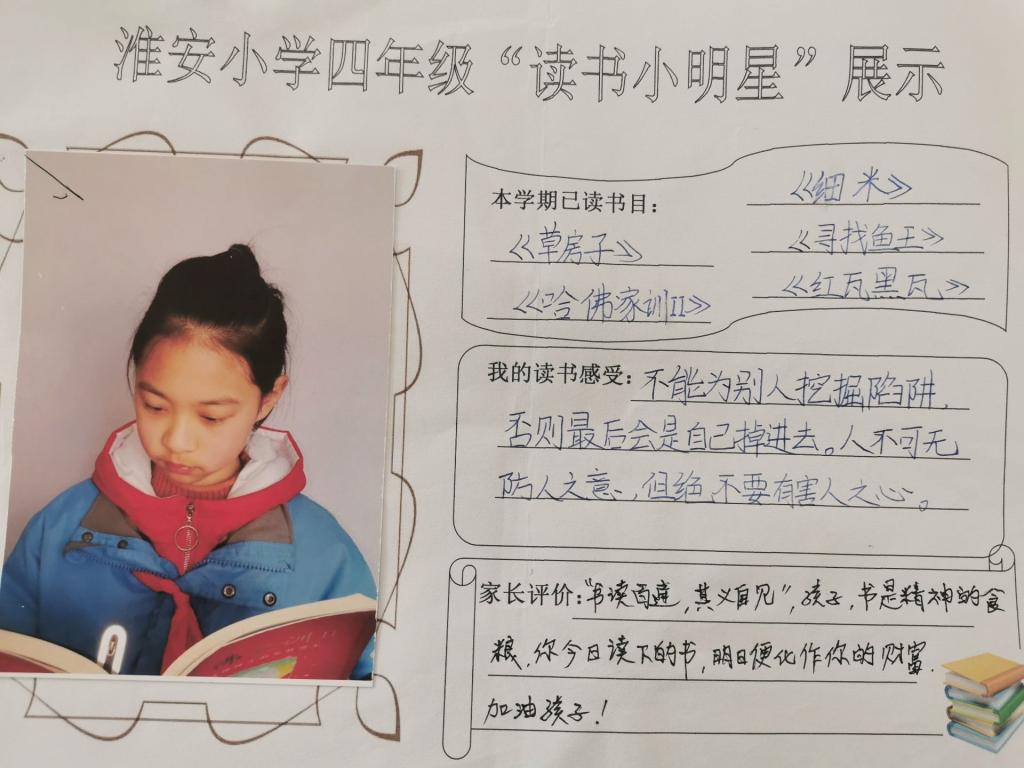 淮安小学四年级“读书小明星”展示
本学期已读书目：
《草房子》
《哈佛家训II》
《细米》
《寻找鱼王》
《红瓦黑瓦》
我的读书感受：不能为别人挖掘陷阱，
否则最后会是自己掉进去。人不可无
防人之意，但绝不要有害人之心。
家长评价：“书读百遍，其义自见”，孩子，书是精神的食
粮，你今日读下的书，明日便化作你的财富.
加油孩子！